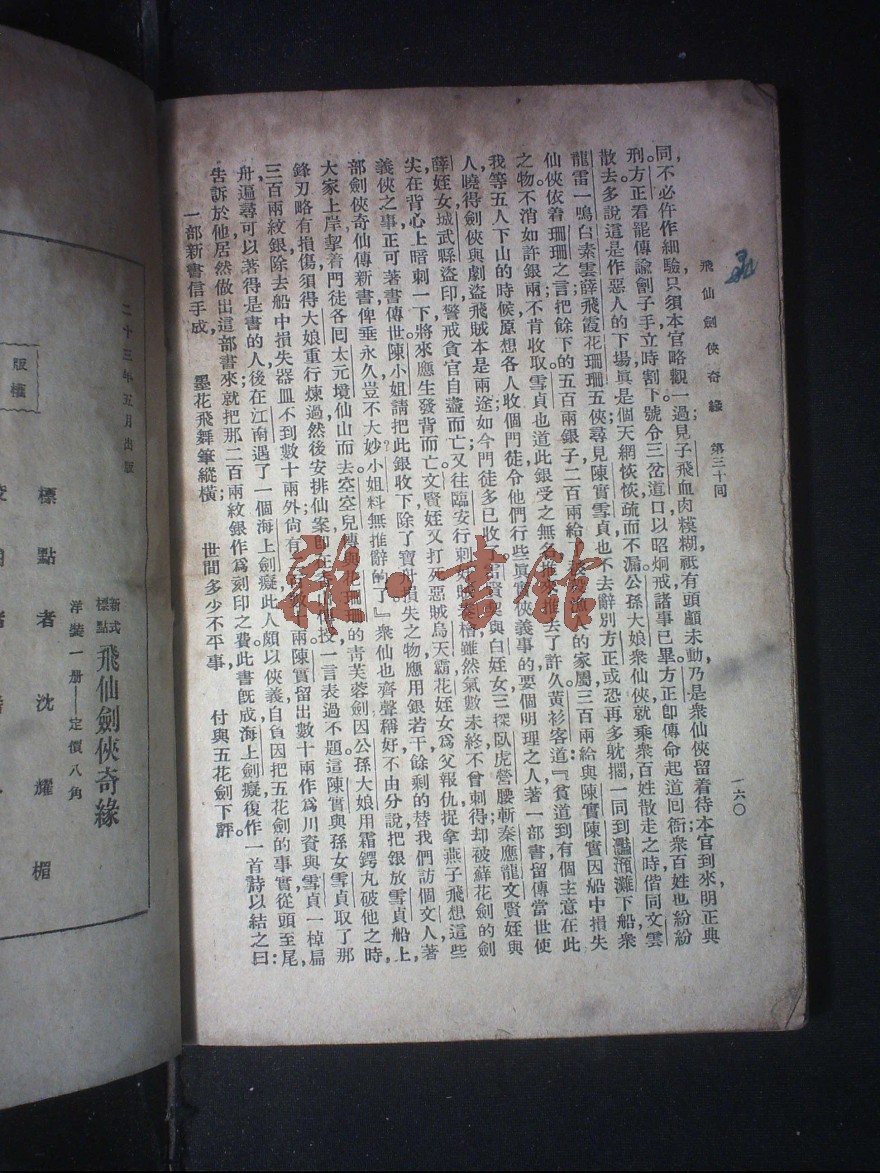 飛仙劍俠奇緣　第三十回
一六〇
同，不必仵作細驗，只須本官略觀一過，見子飛血肉糢糊，祇有頭顱未動，乃是衆仙俠留着待本官到來，明正典
刑。方正看罷，傳諭劊子手立時割下，號令三岔道口，以昭炯戒，諸事已畢，方正卽傳命起道回衙，衆百姓也紛紛
散去，多說這是作惡人的下場，眞是個天網恢恢，疏而不漏。公孫大娘衆仙俠就乘衆百姓散走之時，偕同文雲
龍雷一鳴白素雲薛飛霞花珊珊五俠，尋見陳實雪貞，也不去辭別方正，或恐再多躭擱，一同到灩澦灘下船，衆
仙俠依着珊珊之言，把餘下的五百兩銀子，二百兩給人的家屬，三百兩給與陳實，陳實因船中損失
之物，不消如許銀兩，不肯收取，雪貞也道此銀受之無名，推去了許久，黃衫客道：『貧道到有個主意在此
我等五人下山的時候，原想各人收個門徒，令他們行些眞實俠義事的，要個明理之人，著一部書，留傳當世，使
人曉得劍俠與劇盜飛賊，本是兩途；如今門徒多已收與白姪女三探臥虎營，腰斬秦應龍，文賢姪與
薛姪女城武縣盜印，警戒貪官自盡而亡，又往臨安行刺檜，雖然氣數未終，不曾刺得，却被蘇花劍的劍
尖在背心上暗刺一下，將來應生發背而亡。文賢姪又打死惡賊烏天霸，花姪女爲父報仇，捉拿燕子飛，想這些
義俠之事，正可著書傳世，陳小姐請把此銀收下，除了寶舟損失之物，應用銀若干，餘剩的替我們訪個文人，著
部劍俠奇仙傳新書，俾垂永久，豈不大妙？小姐料無推辭的了』。衆仙也齊聲稱好，不由分說，把銀放雪貞船上，
大家上岸，挈着門徒，各囘太元境仙山而去。空空兒傳與花珊珊的靑芙蓉劍，因公孫大娘用霜鍔丸破他之時，
鋒刃略有損傷，須得大娘重行煉過，然後安排仙案，卽在授，一言表過不題，這陳實與孫女雪貞，取了那
三百兩紋銀，除去船中損失器皿不到數十兩外，尙有兩，陳實留出數十兩，作爲川資，與雪貞一棹扁
舟，遍尋可以著得是書的人，後在江南遇了一個海上劍癡，此人頗以俠義自負，因把五花劍的事實，從頭至尾，
告訴於他，居然做出這部書來，就把那二百兩紋銀，作爲刻印之費，此書旣成，海上劍癡復作一首詩以結之曰：
一部新書信手成，　墨花飛舞筆縱橫；　世間多少不平事　付與五花劍下評。
二十三年五月出版
版權
新式標點　飛仙劍俠奇緣
洋裝一册——定價八角
標點者沈耀楣
雜·書館